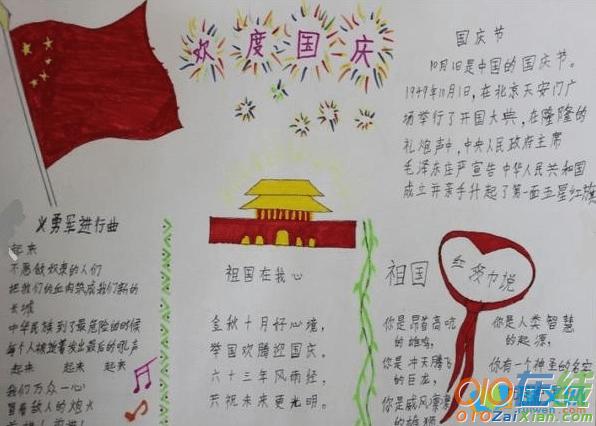 欢度国庆
国庆节
10月1日是中国的国庆节。
1949年10月1日,在北京天安门广
场举行了开国大典,在隆隆的
礼炮声中,中央人民政府主席
毛泽东庄严宣告中华人民共和国
成立并亲手升起了第一面五星红旗
义勇军进行曲
起来
不愿做奴隶的人们
把我们的血肉筑成我们新的
长城
中华民族到了最危险的时候
每个人被迫着发出最后的吼声
起来 起来 起来
我们万众一心
冒着敌人的炮火
祖国在我心
金秋十月好心境,
举国欢腾迎国庆。
六十三年风雨经,
共祝未来更光明。
祖国
你是昂首高吭
的雄鸡,
你是冲天腾飞
的巨龙,
你是威风凛凛
的雄狮
红领巾说
你是人类智慧
的起源,
你有一个神圣的名字
在线
ruiwen.com
OIOZaiXian.Com